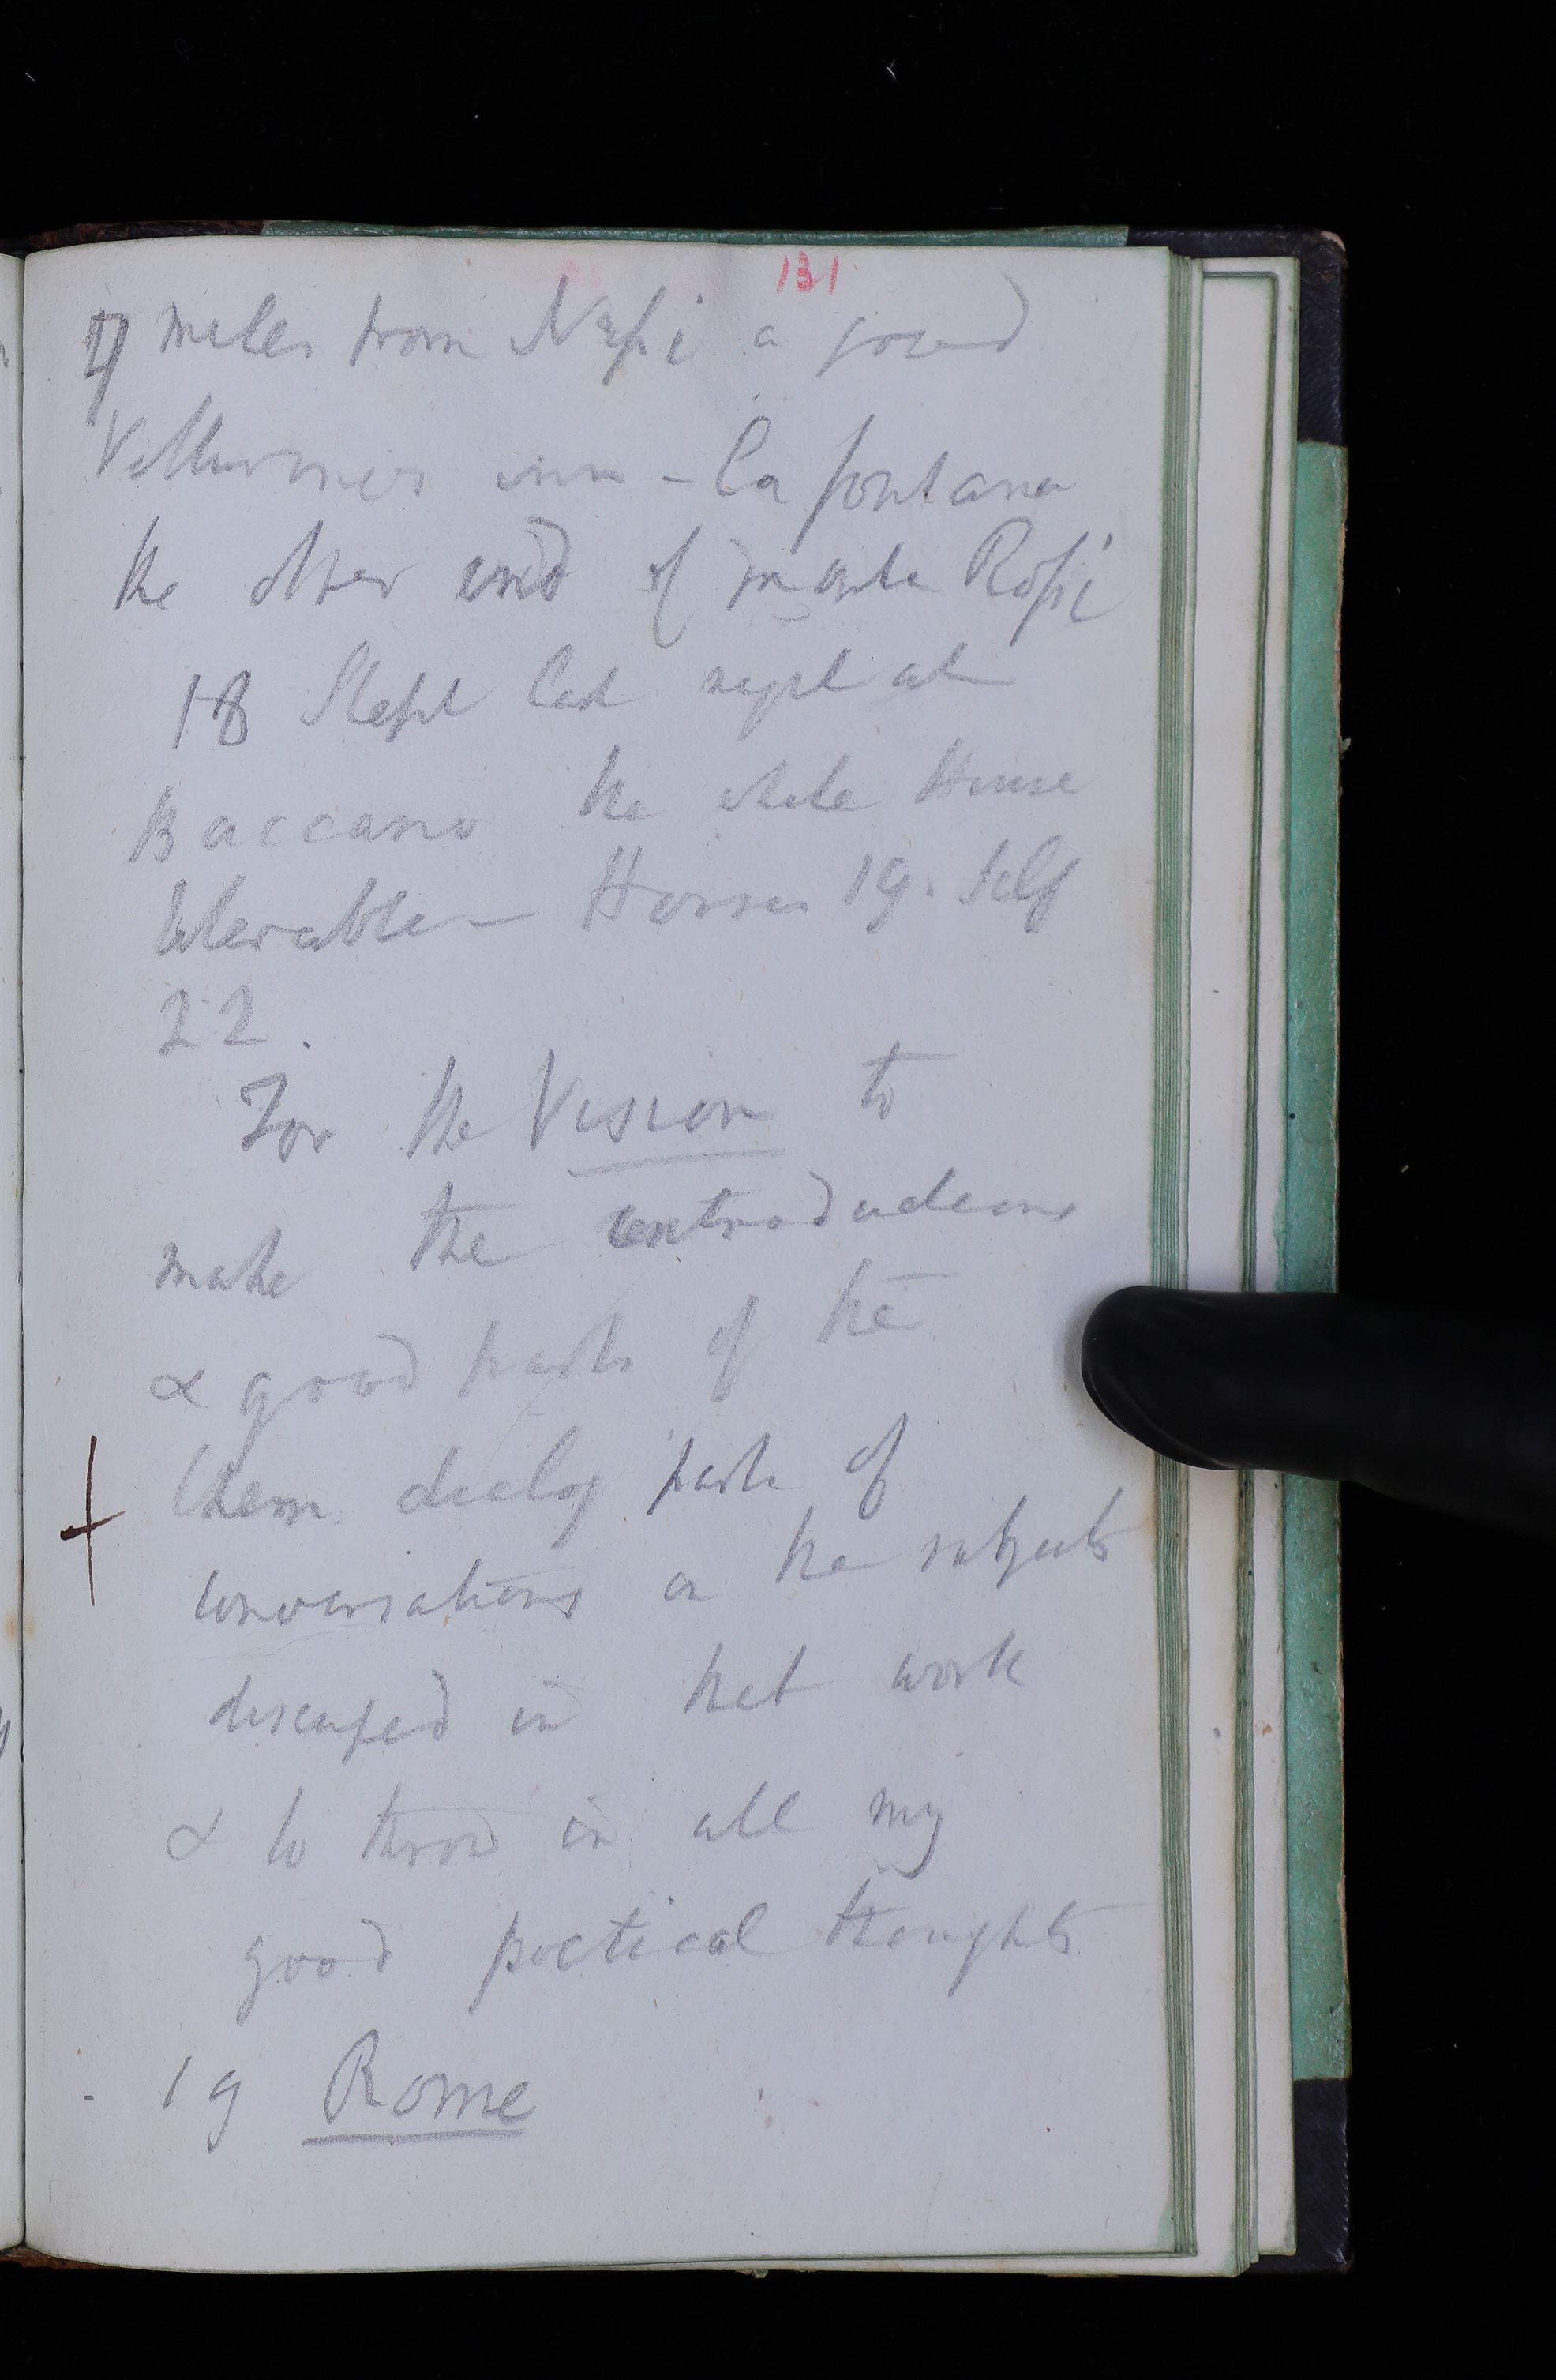 131
4 miles from Nepi a good
Vetturinos inn - La fontana
the other end of monte Rossi
18 Slept last night at
Baccano the white House
tolerable - Horses 19. Self
22.
For the Vision to
make the introductions
& good parts of the
Chem. dialog parts of
conversations on the subjects
discussed in that work
& to throw in all my
good poetical thoughts
19 Rome